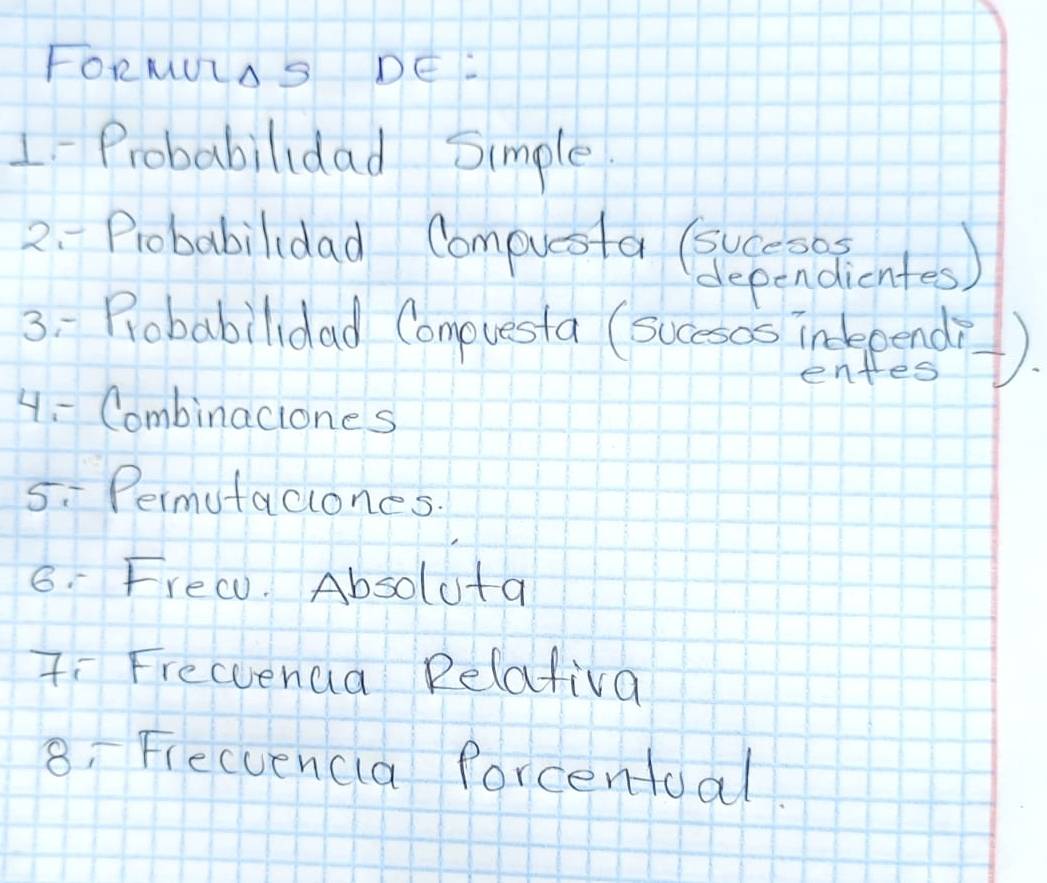 FORMULAS DE:
1.- Probabilidad Simple.
2.- Probabilidad Compuesta (sucesos
dependientes)
3.- Probabilidad Compuesta (sucesos independi_
entes).
4.- Combinaciones
5.- Permutaciones.
6.- Frecu. Absoluta
7.- Frecuencia Relativa
8.- Frecuencia Porcentual.